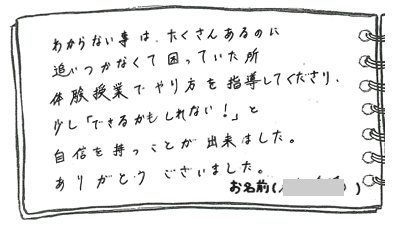 わからない事は、たくさんあるのに
追いつかなくて困っていた所
体験授業でやり方を指導してくださり、
少し「できるかもしれない!」と
自信を持つことが出来ました。
ありがとうございました。
お名前( )